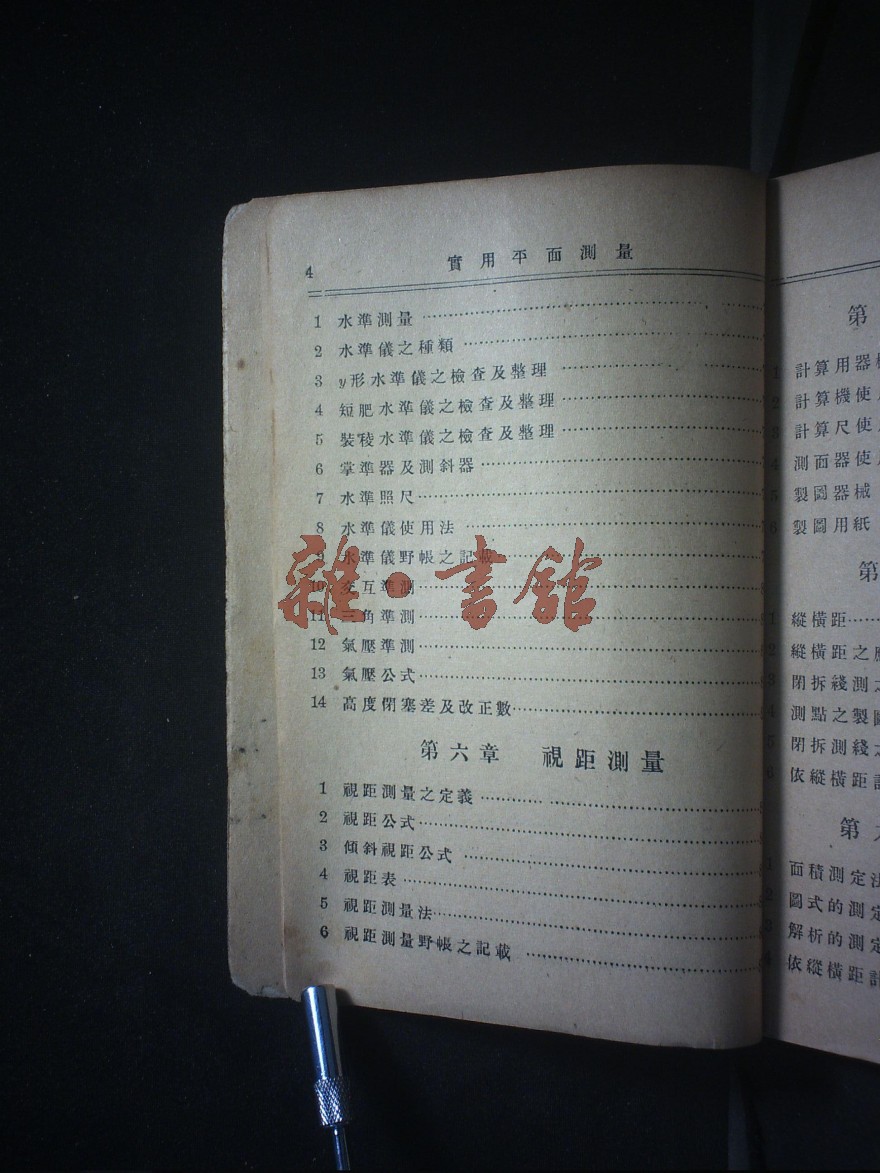 4 實用平面測量
1 水準測量
2 水準儀之種類
3 y形水準儀之檢查及整理
4 短肥水準儀之檢查及整理
5 裝稜水準儀之檢查及整理
6 掌準器及測斜器
7 水準照尺
8 水準儀使用法
9 水準儀野帳之記載
10 交互準測
11 三角準測
12 氣壓準測
13 氣壓公式
14 高度閉塞差及改正數
第六章 視距測量
1 視距測量之定義
2 視距公式
3 傾斜視距公式
4 視距表
5 視距測量法
6 視距測量野帳之記載
雜·書館
第
1 計算用器
2 計算機使
3 計算尺使
4 測面器使
5 製圖器械
6 製圖用紙
第
1 縱橫距
2 縱橫距之
3 閉拆綫測
4 測點之製
5 閉拆測綫
6 依縱橫距
第
1 面積測定
2 圖式的測
3 解析的測
依縱橫距